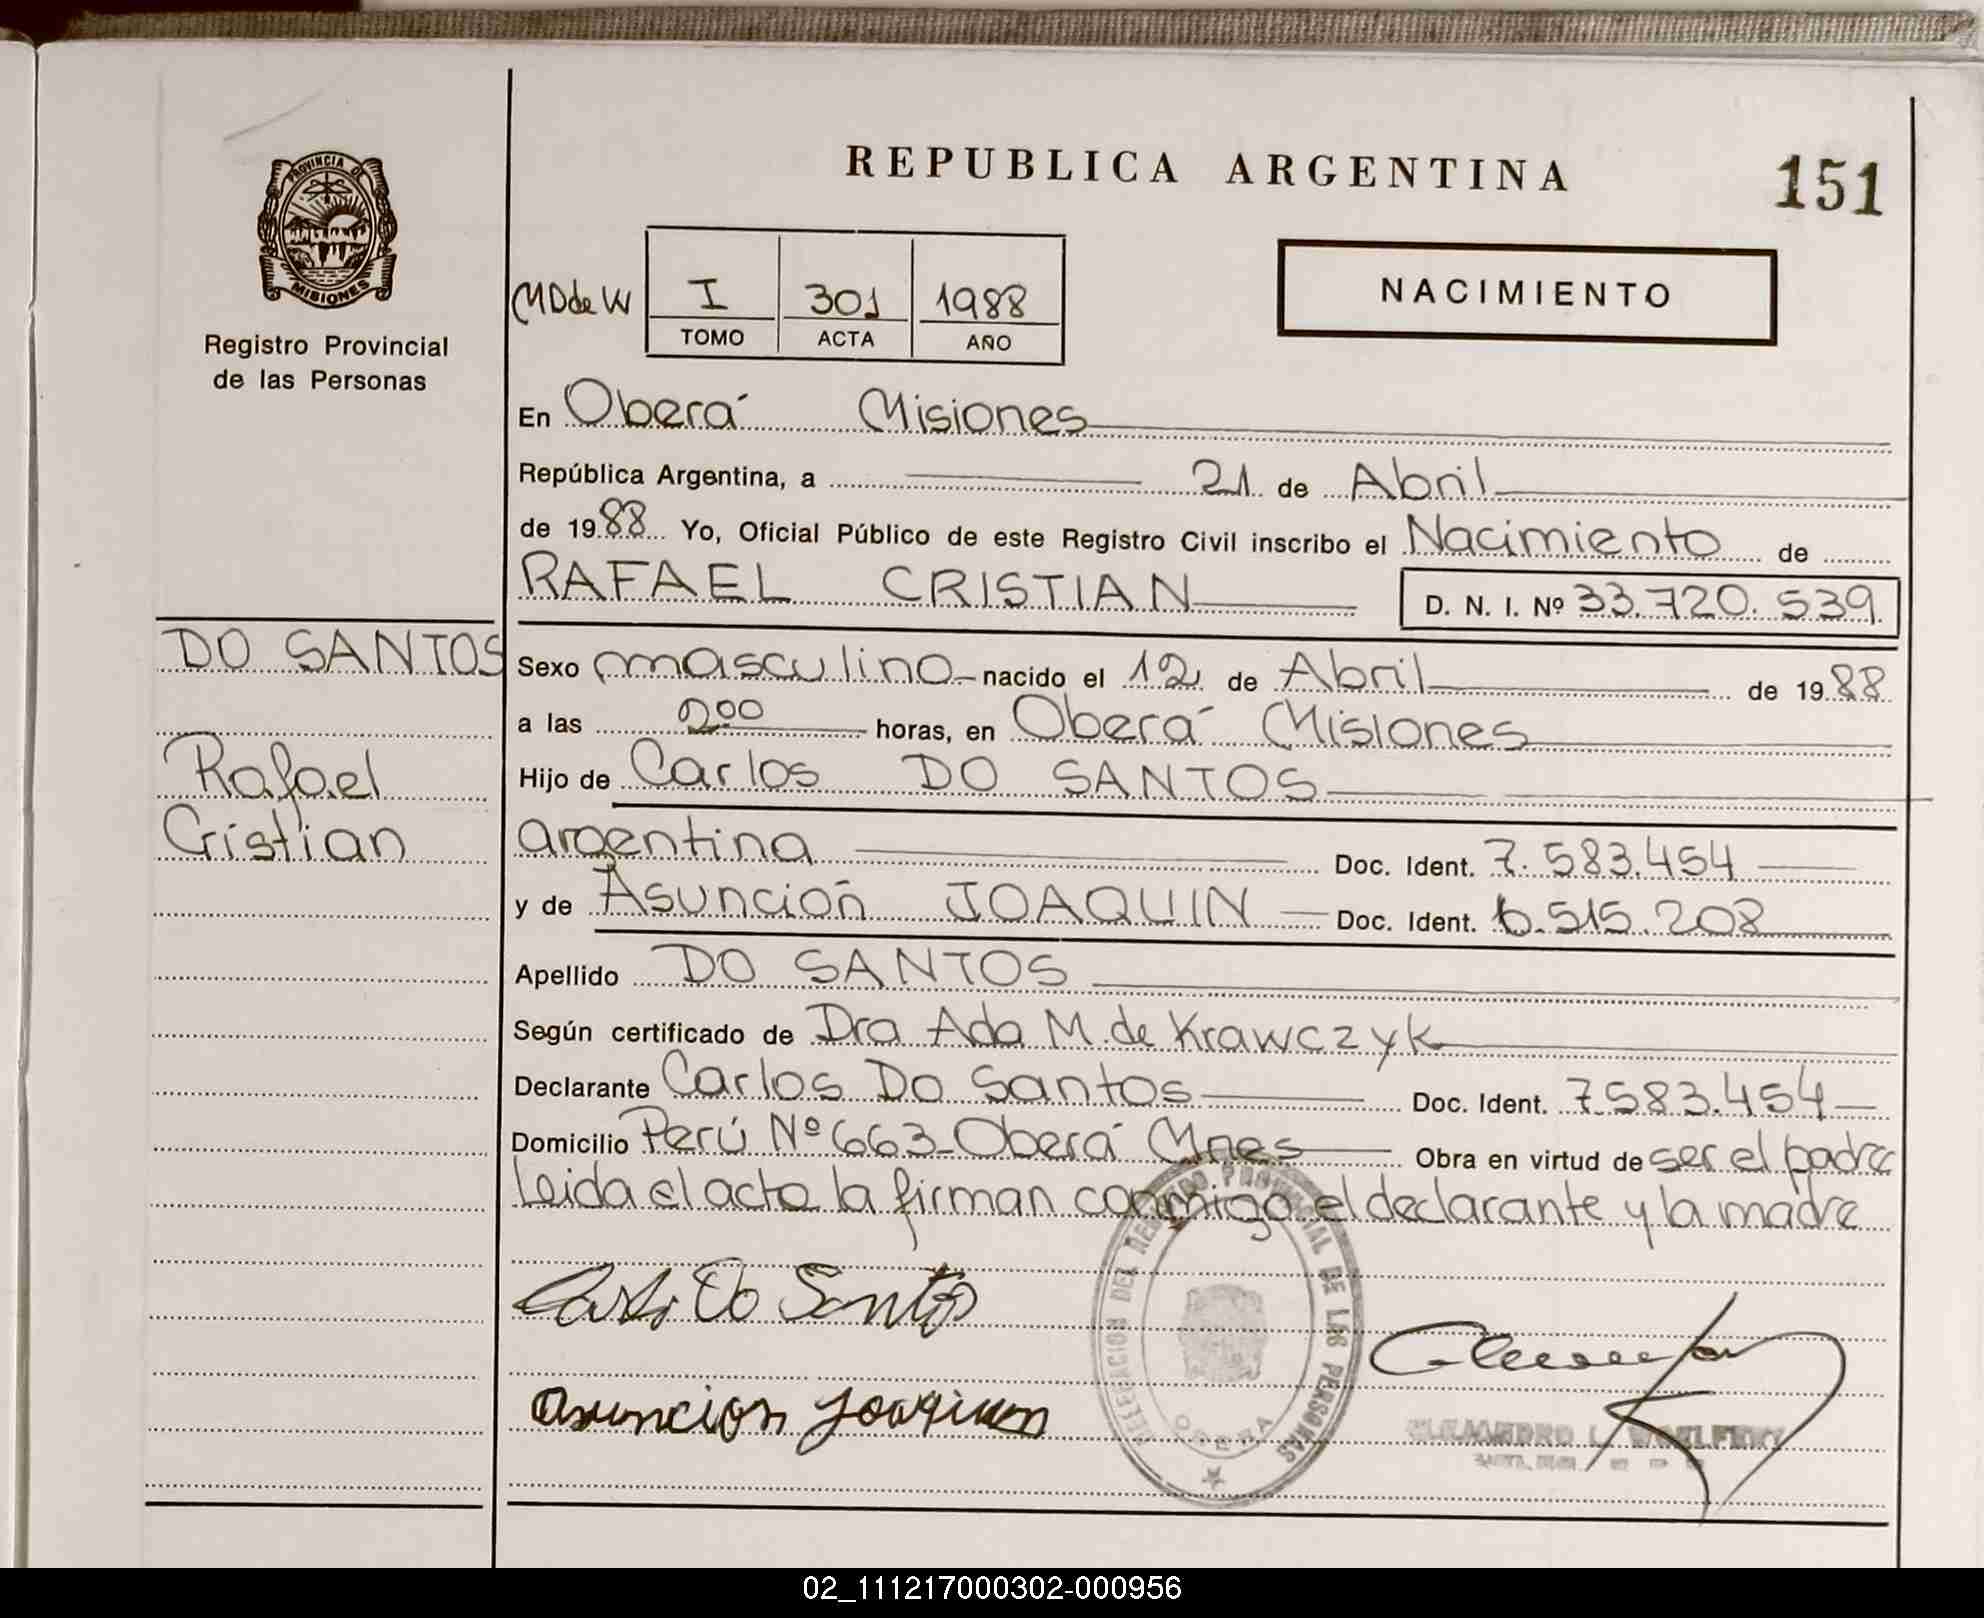 REPUBLICA ARGENTINA
151
PROVINCIA DE
MISIONES
Registro Provincial
de las Personas
MD de W
I 301 1988
TOMO ACTA AÑO
NACIMIENTO
En Oberá Misiones
República Argentina, a 21 de Abril
de 1988 Yo, Oficial Público de este Registro Civil inscribo el Nacimiento de
RAFAEL CRISTIAN D. N. I. Nº 33.720.539
DO SANTOS
Rafael
Cristian
Sexo masculino nacido el 12 de Abril de 1988
a las 2⁰⁰ horas, en Oberá Misiones
Hijo de Carlos DO SANTOS
argentina Doc. Ident. 7.583.454
y de Asunción JOAQUIN Doc. Ident. 6.515.208
Apellido DO SANTOS
Según certificado de Dra Ada M. de Krawczyk
Declarante Carlos Do Santos Doc. Ident. 7.583.454
Domicilio Perú Nº 663_Oberá Mnes Obra en virtud de ser el padre
Leida el acta la firman conmigo el declarante y la madre
Carlos Do Santos
Asuncion Joaquin
DELEGACION DEL REGISTRO PROVINCIAL DE LAS PERSONAS
OBERA
02_111217000302-000956